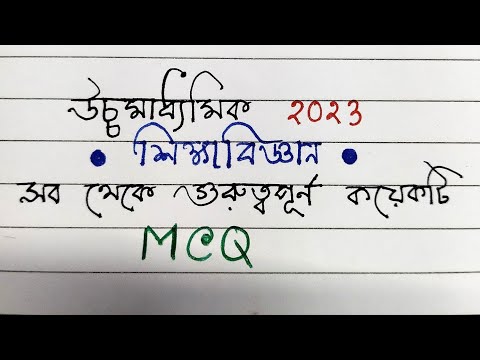 উচ্চমাধ্যমিক 2023
• শিক্ষাবিজ্ঞান •
সব থেকে গুরুত্বপূর্ন কয়েকটি
MCQ